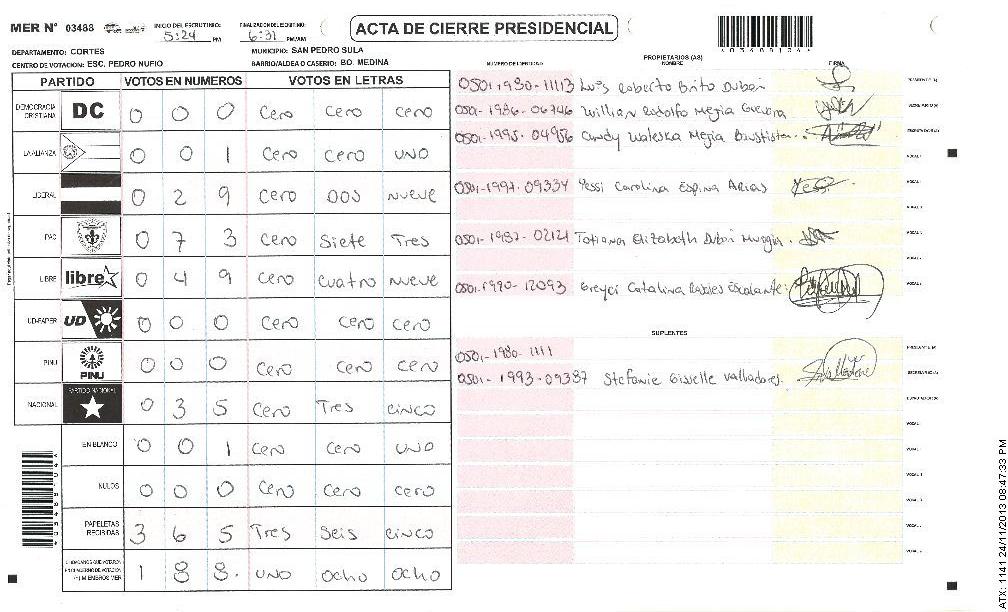 MER Nº 03488 INICIO DEL ESCRUTINIO: 5:24 PM FINALIZACION DEL ESCRUTINIO: 6:31 PM/AM ACTA DE CIERRE PRESIDENCIAL
DEPARTAMENTO: CORTES MUNICIPIO: SAN PEDRO SULA
CENTRO DE VOTACION: ESC. PEDRO NUFIO BARRIO/ALDEA O CASERIO: BO. MEDINA
PARTIDO VOTOS EN NUMEROS VOTOS EN LETRAS
DEMOCRACIA CRISTIANA DC 0 0 0 Cero Cero cero
LA ALIANZA 0 0 1 Cero Cero UNO
LIBERAL 0 2 9 Cero DOS NUEVE
PAC 0 7 3 Cero Siete Tres
LIBRE libre 0 4 9 Cero Cuatro NUEVE
UD-FAPER UD 0 0 0 Cero Cero Cero
PINU PINU 0 0 0 Cero Cero Cero
NACIONAL PARTIDO NACIONAL 0 3 5 Cero Tres CINCO
EN BLANCO 0 0 1 Cero Cero UNO
NULOS 0 0 0 Cero Cero Cero
PAPELETAS RECIBIDAS 3 6 5 Tres Seis CINCO
1 8 8. UNO OCHO OCHO
PROPIETARIOS (AS)
NUMERO DE IDENTIDAD NOMBRE FIRMA
0501-1980-11113 Luis Roberto Brito Dubon
0501-1986-06746 Willian Rodolfo Mejia
0501-1995-04956 Cindy Waleska Mejia Bautista.
0501-1997-09334 Yessi Carolina Espina Arias
0501-1987-02121 Tatiana Elizabeth Dubon
0501-1990-12093 Greyci Catalina Robles Escalante
SUPLENTES
0501-1980-1111
0501-1993-09387 Stefanie Gisselle Valladares.
ATX: 1141 24/11/2013 08:47:33 PM